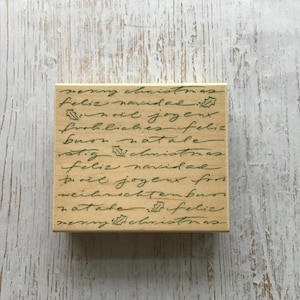 merry christmas
feliz navidad
noel joyeux
frohliches feliz
buon natale
stig christmas
feliz navidad
noel joyeux fro
weihnachten buon
natale feliz
merry christmas